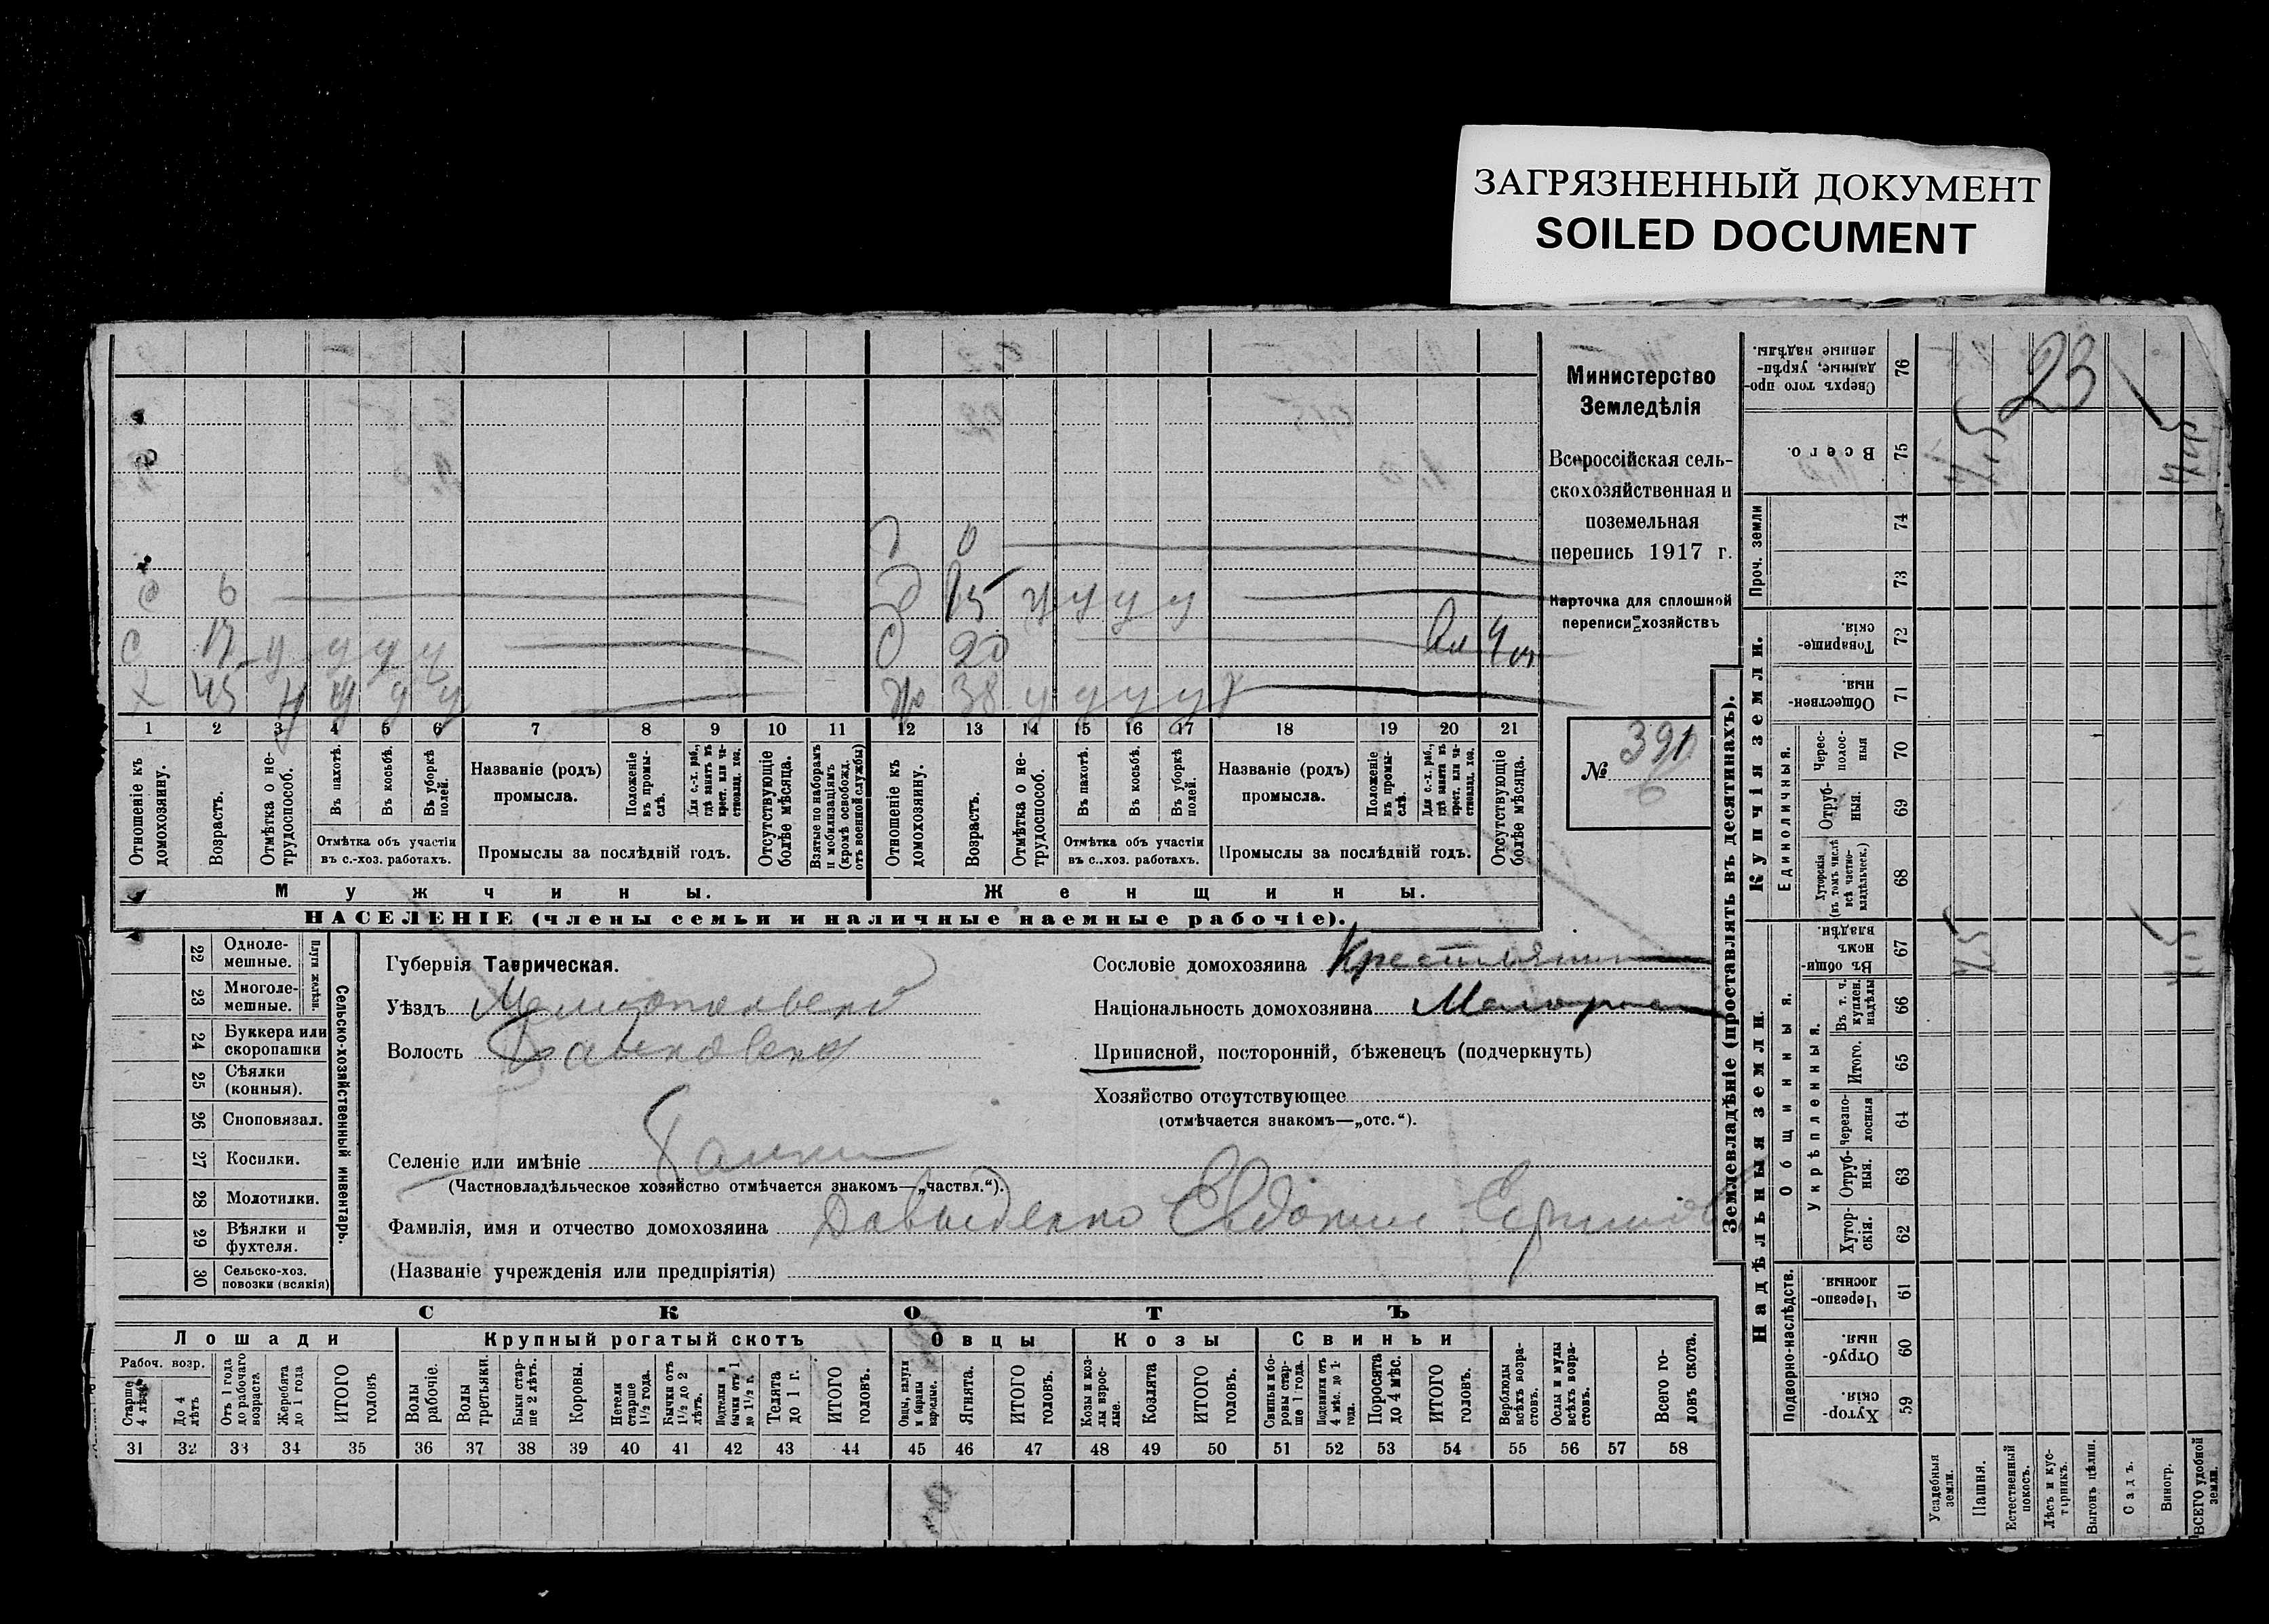 ЗАГРЯЗНЕННЫЙ ДОКУМЕНТ
SOILED DOCUMENT
Министерство
Земледѣлія
Всероссійская сель-
скохозяйственная и
поземельная
перепись 1917 г.
Карточка для сплошной
переписи хозяйствъ
№ 391
6
23
д 0
с 6
д 15 у у у у
с 17 у у у у
д 20
х 45 у у у у
ж 38 у у у у
1 2 3 4 5 6 7 8 9 10 11 12 13 14 15 16 17 18 19 20 21
Отношеніе къ домохозяину.
Возрастъ.
Отмѣтка о не-трудоспособ.
Въ пахотѣ.
Въ косьбѣ.
Въ уборкѣ полей.
Отмѣтка объ участіи
въ с.-хоз. работахъ.
Названіе (родъ)
промысла.
Положеніе въ промы-слѣ.
Для с.-х. раб., гдѣ занятъ въ крест. или ча-ствовлад. хоз.
Промыслы за послѣдній годъ.
Отсутствующіе болѣе мѣсяца.
Взятые по наборамъ и мобилизаціямъ (кромѣ освобожд. отъ военной службы)
Отношеніе къ домохозяину.
Возрастъ.
Отмѣтка о не-трудоспособ.
Въ пахотѣ.
Въ косьбѣ.
Въ уборкѣ полей.
Отмѣтка объ участіи
въ с..хоз. работахъ.
Названіе (родъ)
промысла.
Положеніе въ промы-слѣ.
Для с.-х. раб., гдѣ занята въ крест. или ча-ствовлад. хоз.
Промыслы за послѣдній годъ.
Отсутствующіе болѣе мѣсяца.
Мужчины.
Женщины.
НАСЕЛЕНІЕ (члены семьи и наличные наемные рабочіе).
Сельско-хозяйственный инвентарь.
Плуги желѣзн.
22 Одноле-мешные.
23 Многоле-мешные.
24 Буккера или скоропашки
25 Сѣялки (конныя).
26 Сноповязал.
27 Косилки.
28 Молотилки.
29 Вѣялки и фухтеля.
30 Сельско-хоз. повозки (всякія)
Губернія Таврическая.
Уѣздъ Мелитопольскій
Волость
Селеніе или имѣніе
(Частновладѣльческое хозяйство отмѣчается знакомъ—„частвл.“).
Фамилія, имя и отчество домохозяина Давыденко Евдоким
(Названіе учрежденія или предпріятія)
Сословіе домохозяина Крестьянин
Національность домохозяина Малорос
Приписной, посторонній, бѣженецъ (подчеркнуть)
Хозяйство отсутствующее
(отмѣчается знакомъ—„отс.“).
СКОТЪ
Лошади
Крупный рогатый скотъ
Овцы
Козы
Свиньи
Рабоч. возр.
Старше 4 лѣтъ
До 4 лѣтъ
Отъ 1 года до рабочаго возраста
Жеребята до 1 года
ИТОГО головъ
Волы рабочіе.
Волы третьяки.
Быки стар-ше 2 лѣтъ.
Коровы.
Нетели старше 1½ года.
Бычки отъ 1½ до 2 лѣтъ.
Подтелки и бычки отъ 1 до 1½ г.
Телята до 1 г.
ИТОГО головъ.
Овцы, валухи и бараны взрослые.
Ягнята.
ИТОГО головъ.
Козы и коз-лы взрос-лые.
Козлята
ИТОГО головъ.
Свиньи и бо-ровы стар-ше 1 года.
Подсвинки отъ 4 мѣс. до 1 года.
Поросята до 4 мѣс.
ИТОГО головъ.
Верблюды всѣхъ возра-стовъ.
Ослы и мулы всѣхъ возра-стовъ.
Всего го-ловъ скота.
31 32 33 34 35 36 37 38 39 40 41 42 43 44 45 46 47 48 49 50 51 52 53 54 55 56 57 58
Землевладѣніе (проставлять въ десятинахъ).
Сверхъ того про-данные, укрѣп-ленные надѣлы. 76
Всего. 75
Проч. земли 74
73
Купчія земли.
Товарище-скія. 72
Обществен-ныя. 71
Единоличныя.
Черес-полос-ныя 70
Отруб-ныя. 69
Хуторскія (въ томъ числѣ всѣ частно-владѣльческ.) 68
Надѣльныя земли.
Общинныя.
Въ общи-номъ владѣн. 67
Укрѣпленныя.
Въ т. ч. куплен. надѣлы 66
Итого. 65
Черезпо-лосныя 64
Отруб-ныя. 63
Хутор-скія. 62
Подворно-наслѣдств.
Черезпо-лосныя 61
Отруб-ныя. 60
Хутор-скія. 59
Усадебныя земли.
Пашня.
Естественный покосъ.
Лѣсъ и кус-тарникъ.
Выгонъ цѣлин.
Садъ.
Виногр.
ВСЕГО удобной земли.